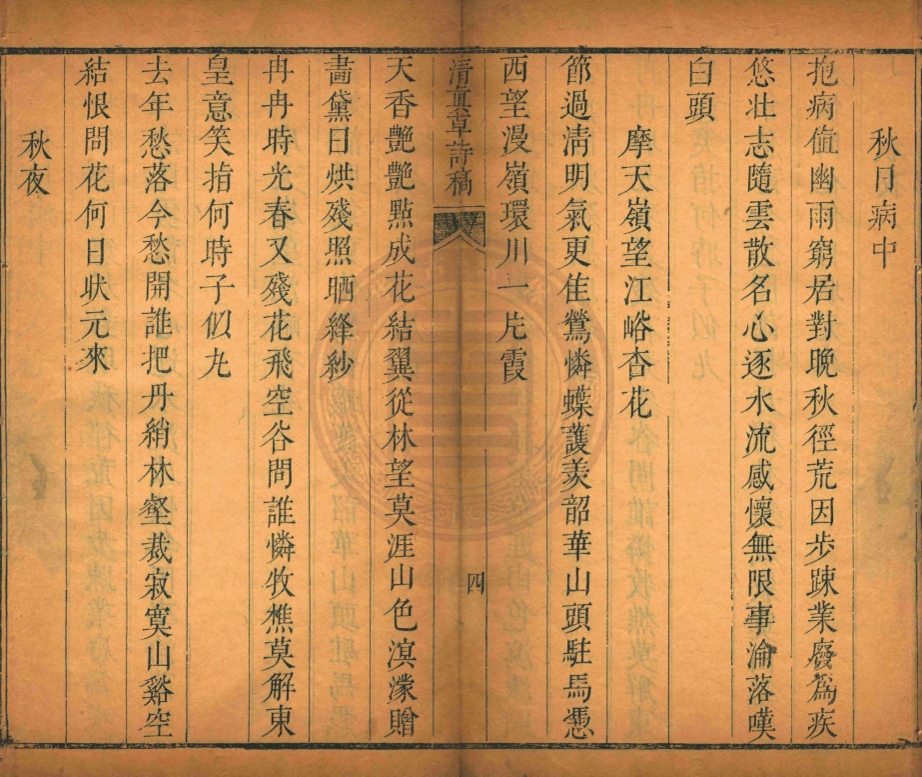 秋日病中
抱病値幽雨窮居對晚秋徑荒因步踈業廢為疾
悠壯志隨雲散名心逐水流感懷無限事淪落嘆
白頭
摩天嶺望江峪杏花
節過淸明氣更佳鶯憐蝶䕶羡韶華山頭駐馬憑
西望漫嶺環川一片霞
清真草詩稿
四
天香艷艷點成花結翼從林望莫涯山色溟濛贈
畵黛日烘殘照晒絳紗
冉冉時光春又殘花飛空谷問誰憐牧樵莫解東
皇意笑指何時子似丸
去年愁落今愁開誰把丹綃林壑裁寂寞山谿空
結恨問花何日狀元來
秋夜